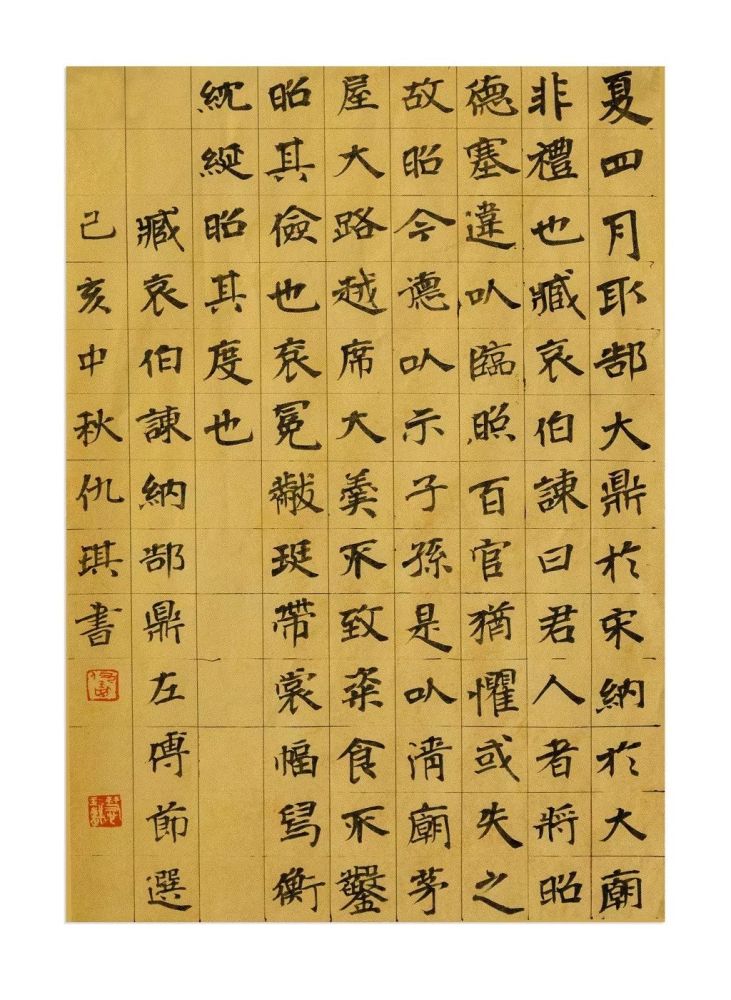 夏四月取郜大鼎於宋納於大廟
非禮也臧哀伯諫曰君人者將昭
德塞違以臨照百官猶懼或失之
故昭令德以示子孫是以清廟茅
屋大路越席大羹不致粢食不鑿
昭其儉也袞冕黻珽帶裳幅舄衡
紞綖昭其度也
臧哀伯諫納郜鼎左傳節選
己亥中秋仇琪書